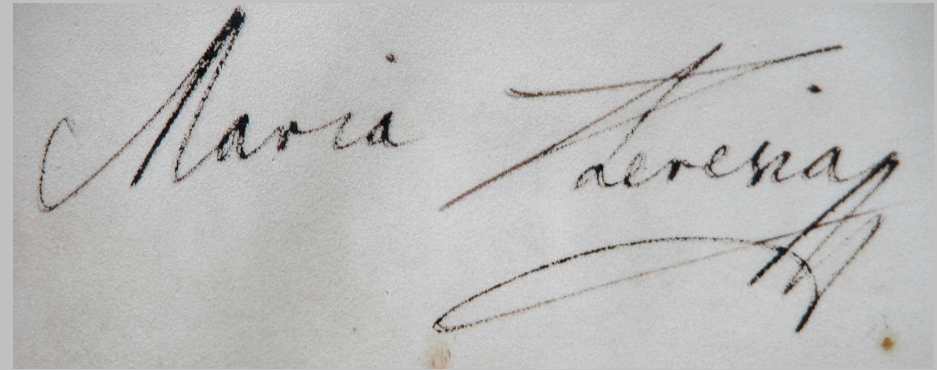 Maria Theresia